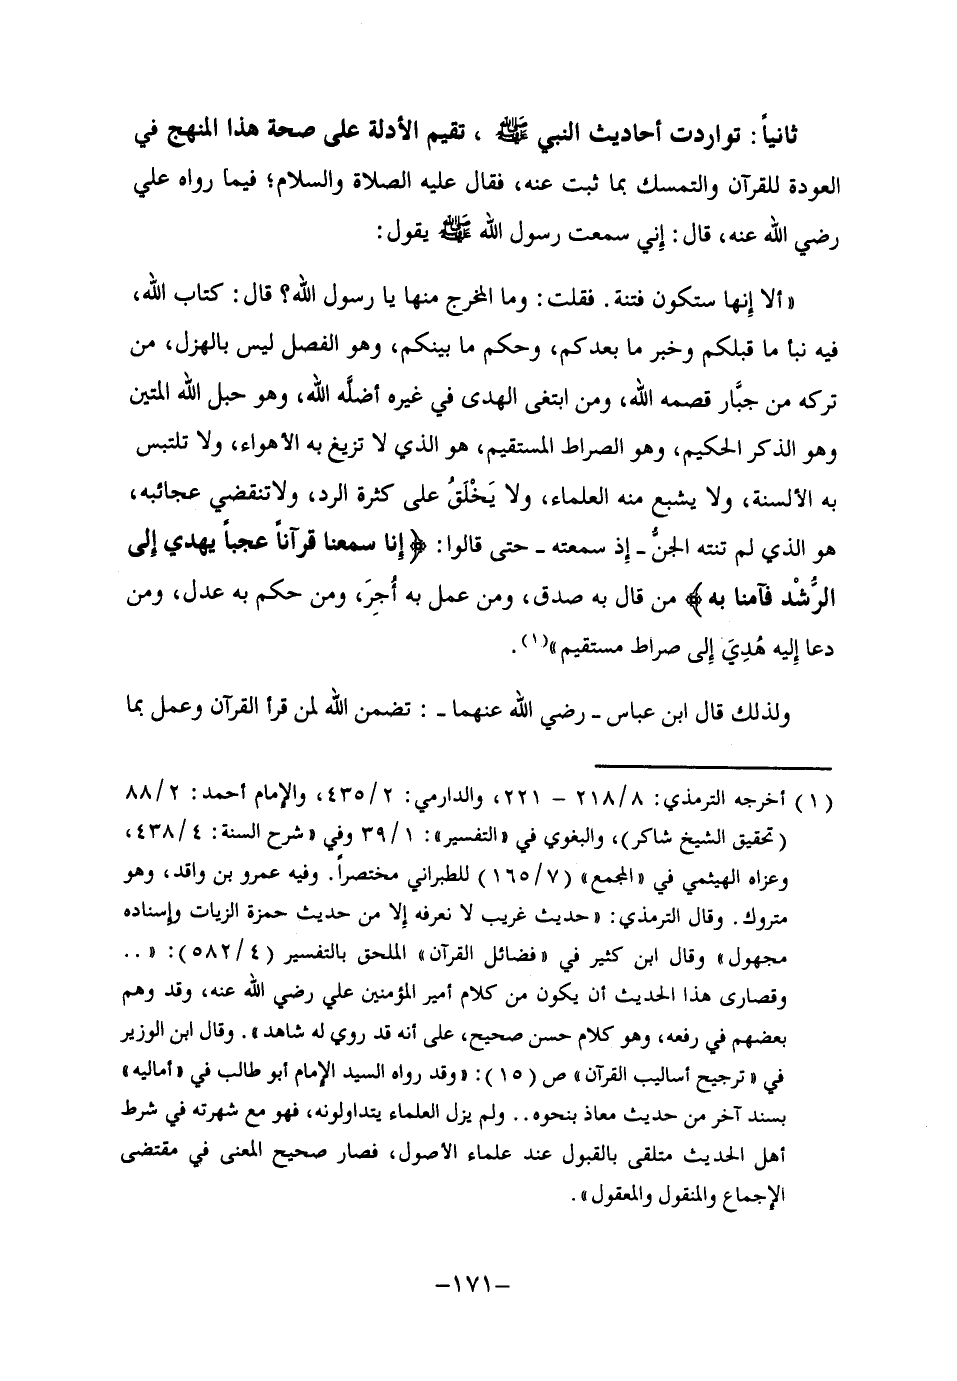 ثانياً : تواردت أحاديث النبي ﷺ ، تقيم الأدلة على صحة هذا المنهج في
العودة للقرآن والتمسك بما ثبت عنه، فقال عليه الصلاة والسلام؛ فيما رواه علي
رضي الله عنه، قال : إني سمعت رسول الله ﷺ يقول :
« ألا إنها ستكون فتنة . فقلت : وما المخرج منها يا رسول الله؟ قال : كتاب الله،
فيه نبأ ما قبلكم وخبر ما بعدكم، وحكم ما بينكم، وهو الفصل ليس بالهزل، من
تركه من جبَّار قصمه الله، ومن ابتغى الهدى في غيره أضلَّه الله، وهو حبل الله المتين
وهو الذكر الحكيم، وهو الصراط المستقيم، هو الذي لا تزيغ به الأهواء، ولا تلتبس
به الألسنة، ولا يشبع منه العلماء، ولا يَخْلَقُ على كثرة الرد، ولاتنقضي عجائبه،
هو الذي لم تنته الجنُّ ـ إذ سمعته ـ حتى قالوا : ﴿ إنا سمعنا قرآناً عجباً يهدي إلى
الرُّشْد فآمنا به ﴾ من قال به صدق، ومن عمل به أُجِرَ، ومن حكم به عدل، ومن
دعا إليه هُدِيَ إلى صراط مستقيم »(١) .
ولذلك قال ابن عباس ـ رضي الله عنهما ـ : تضمن الله لمن قرأ القرآن وعمل بما
(١) أخرجه الترمذي : ٢١٨/٨ – ٢٢١، والدارمي : ٤٣٥/٢، والإمام أحمد : ٨٨/٢
(تحقيق الشيخ شاكر)، والبغوي في «التفسير» : ٣٩/١ وفي «شرح السنة : ٤٣٨/٤،
وعزاه الهيثمي في «المجمع» (١٦٥/٧) للطبراني مختصراً. وفيه عمرو بن واقد، وهو
متروك . وقال الترمذي : «حديث غريب لا نعرفه إلا من حديث حمزة الزيات وإسناده
مجهول» وقال ابن كثير في «فضائل القرآن» الملحق بالتفسير (٥٨٢/٤) : « ..
وقصارى هذا الحديث أن يكون من كلام أمير المؤمنين علي رضي الله عنه، وقد وهم
بعضهم في رفعه، وهو كلام حسن صحيح، على أنه قد روي له شاهد» . وقال ابن الوزير
في «ترجيح أساليب القرآن» ص (١٥) : «وقد رواه السيد الإمام أبو طالب في «أماليه»
بسند آخر من حديث معاذ بنحوه . . ولم يزل العلماء يتداولونه، فهو مع شهرته في شرط
أهل الحديث متلقى بالقبول عند علماء الأصول، فصار صحيح المعنى في مقتضى
الإجماع والمنقول والمعقول» .
–١٧١–